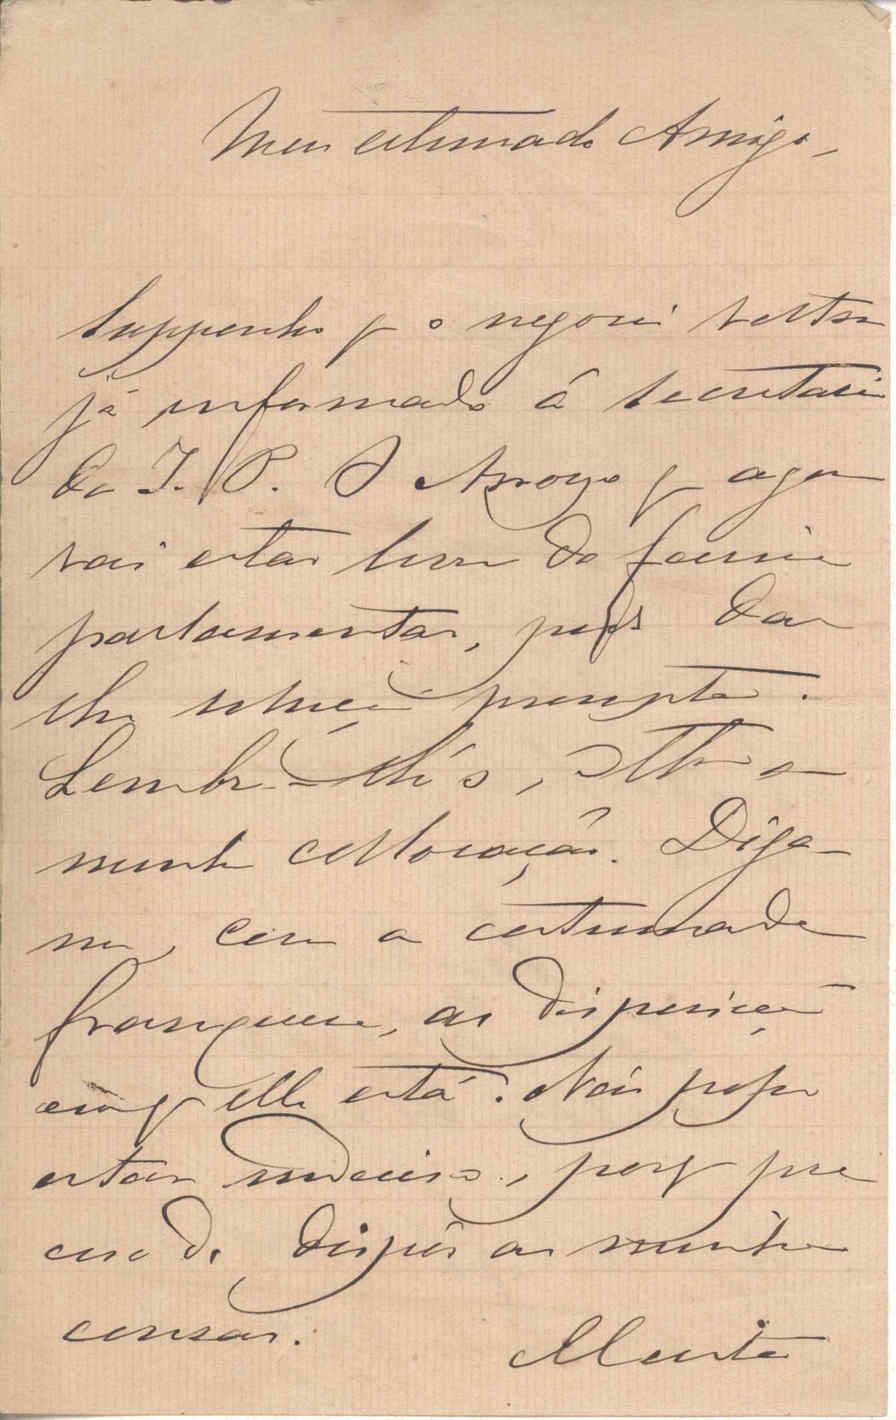 Meu estimado Amigo,
Supponho q o negocio volton
já informado á secretaria
da I. P. O Arroyo q agora
vai estar livre da faina
parlamentar, pode dar
lhe solução prompta.
Lembre-lh'o, elle a
minha collocação. Diga-
me, com a costumada
franqueza, as disposições
em q elle está. Não posso
estar indeciso, porq pre
ciso de dispôr as minhas
cousas.
Muito